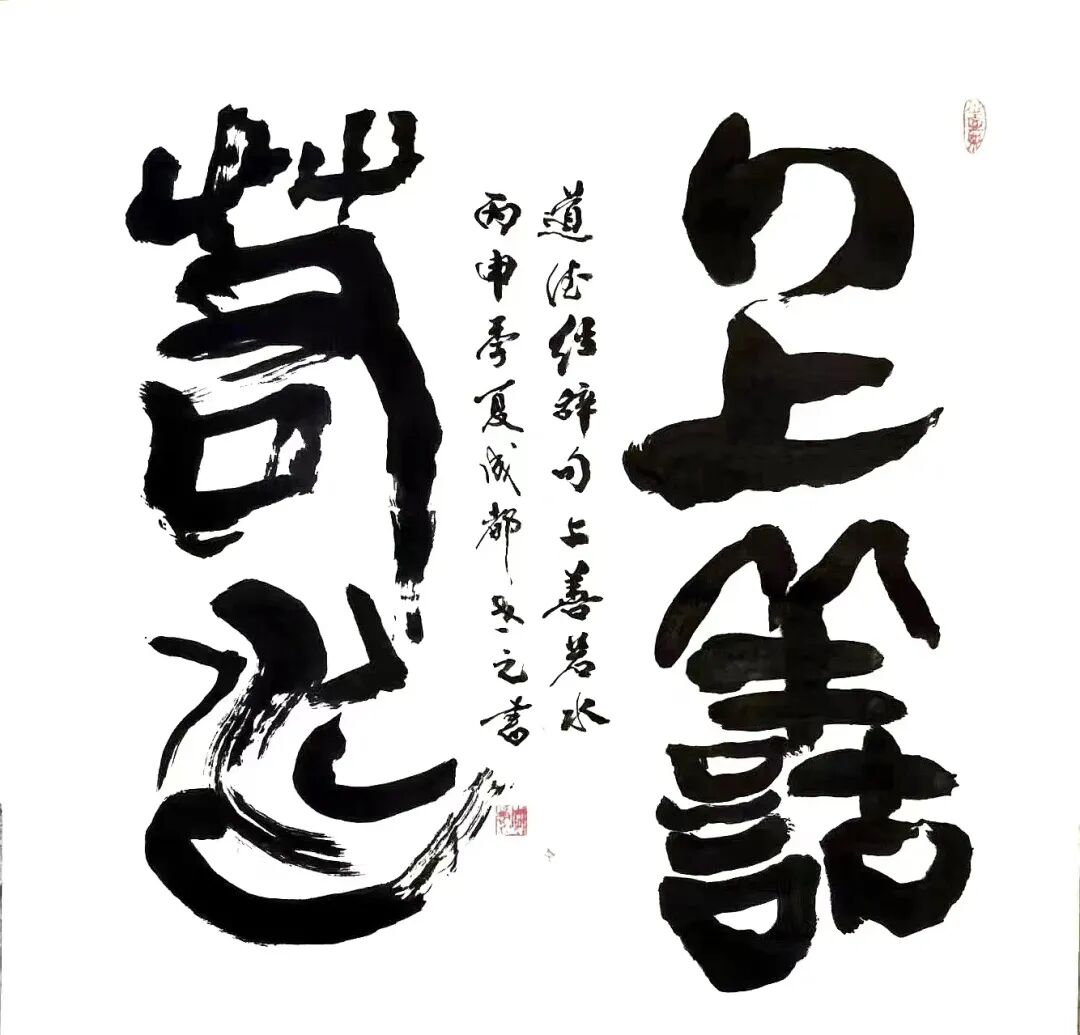 上善
若水
道德经辞句上善若水
丙申季夏成都元書